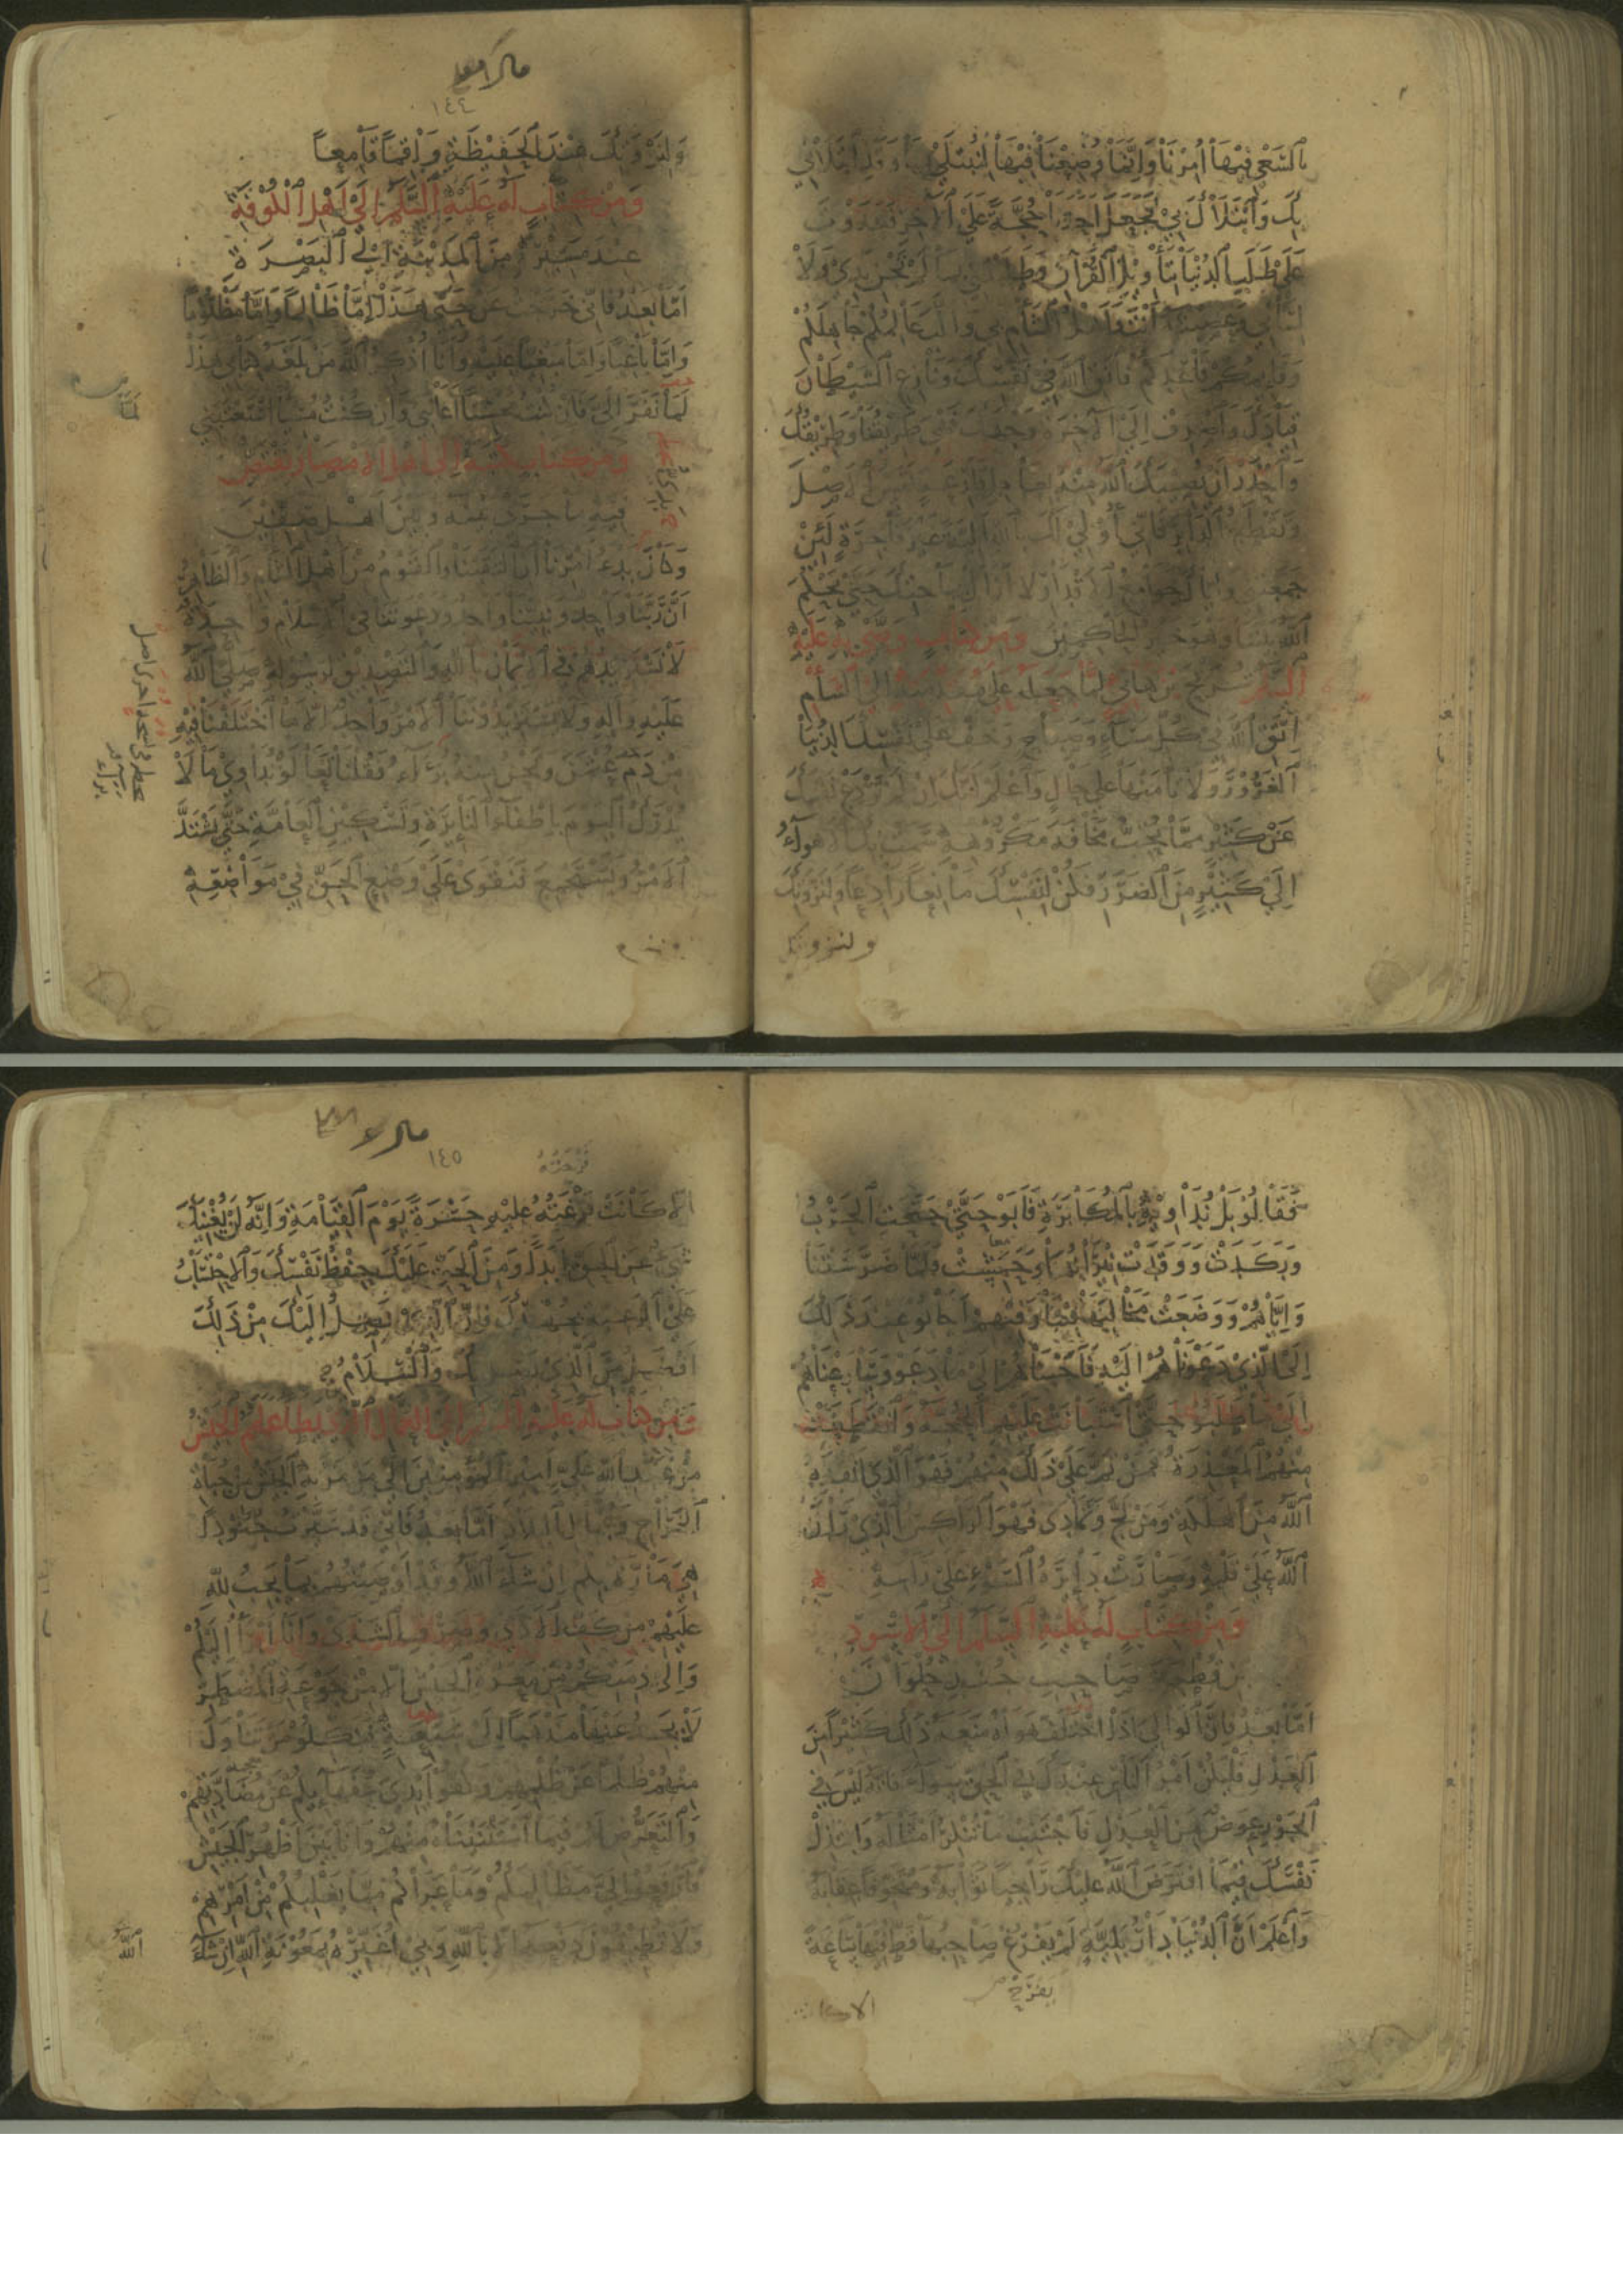 بالسعي فيها امرنا وانما وضعنا فيها لنبتلى بها وقد ابتلاني
بك وابتلاك بي فجعل احدنا حجة على الآخر فعدوت
على طلب الدنيا بتأويل القرآن وطلبتني بما لم تجن يدي ولا
لساني وعصبته انت واهل الشام بي والب عالمكم جاهلكم
وقائمكم قاعدكم فاتق الله في نفسك ونازع الشيطان
قيادك واصرف الى الآخرة وجهك فهي طريقنا وطريقك
واحذر ان يصيبك الله منه بعاجل قارعة تمس الاصل
وتقطع الدابر فاني اولي لك بالله الية غير فاجرة لئن
جمعتني واياك جوامع الاقدار لا ازال بباحتك حتى يحكم
الله بيننا وهو خير الحاكمين ومن كتاب وصى به عليه
السلم شريح بن هانئ لما جعله على مقدمته الى الشام
اتق الله في كل مساء وصباح وخف على نفسك الدنيا
الغرور ولا تأمنها على حال واعلم انك ان لم تردع نفسك
عن كثير مما تحب مخافة مكروهه سمت بك الاهواء
الى كثير من الضرر فكن لنفسك مانعا رادعا ولنزوتك
ولنزوتك
١٤٤
ولنزوتك عند الحفيظة واقما قامعا
ومن كتاب له عليه السلم الى اهل الكوفة
عند مسيره من المدينة الى البصرة
اما بعد فاني خرجت عن حيي هذا اما ظالما واما مظلوما
واما باغيا واما مبغيا عليه وانا اذكر الله من بلغه كتابي هذا
لما نفر الي فان كنت محسنا اعانني وان كنت مسيئا استعتبني
ومن كتاب كتبه الى اهل الامصار يقتص
فيه ما جرى بينه وبين اهل صفين
وكان بدء امرنا ان التقينا والقوم من اهل الشام والظاهر
ان ربنا واحد ونبينا واحد ودعوتنا في الاسلام واحدة
لا نستزيدهم في الايمان بالله والتصديق لرسوله صلى الله
عليه وآله ولا يستزيدوننا الامر واحد الا ما اختلفنا فيه
من دم عثمن ونحن منه برآء فقلنا تعالوا نداوي ما لا
يدرك اليوم باطفاء النائرة وتسكين العامة حتى يشتد
الامر ويستجمع فنقوى على وضع الحق في مواضعه
فقالوا بل نداويه بالمكابرة فابوا حتى جنحت الحرب
وركدت ووقدت نيرانها وحمشت فلما ضرستنا
واياهم ووضعت مخالبها فينا وفيهم اجابوا عند ذلك
الى الذي دعوناهم اليه فاجبناهم الى ما دعوا وسارعناهم
الى ما طلبوا حتى استبانت عليهم الحجة وانقطعت
منهم المعذرة فمن تم على ذلك منهم فهو الذي انقذه
الله من الهلكة ومن لج وتمادى فهو الراكس الذي ران
الله على قلبه وصارت دائرة السوء على راسه
ومن كتاب له عليه السلم الى الاسود
بن قطيبة صاحب جند حلوان
اما بعد فان الوالي اذا اختلف هواه منعه ذلك كثيرا من
العدل فليكن امر الناس عندك في الحق سواء فانه ليس في
الجور عوض من العدل فاجتنب ما تنكر امثاله وابتذل
نفسك فيما افترض الله عليك راجيا ثوابه ومتخوفا عقابه
واعلم ان الدنيا دار بلية لم يفرغ صاحبها قط فيها ساعة
الا كانت
١٤٥
الا كانت فرغته عليه حسرة يوم القيامة وانه لن يغنيك
شيء عن الحق ابدا ومن الحق عليك حفظ نفسك والاحتساب
على الرعية بجهدك فان الذي يصل اليك من ذلك
افضل من الذي يصل بك والسلام
ومن كتاب له عليه السلم الى العمال الذين يطأ عملهم الجيش
من عبد الله علي امير المؤمنين الى من مر به الجيش من جباة
الخراج وعمال البلاد اما بعد فاني قد سيرت جنودا
هي مارة بكم ان شاء الله وقد اوصيتهم بما يجب لله
عليهم من كف الاذى وصرف الشذى وانا ابرأ اليكم
والى ذمتكم من معرة الجيش الا من جوعة المضطر
لا يجد عنها مذهبا الى شبعه فنكلوا من تناول
منهم ظلما عن ظلمهم وكفوا ايدي سفهائكم عن مضادتهم
والتعرض لهم فيما استثنيناه منهم وانا بين اظهر الجيش
فارفعوا الي مظالمكم وما عراكم مما يغلبكم من امرهم
ولا تطيقون دفعه الا بالله وبي اغيره بمعونة الله ان شاء
الله